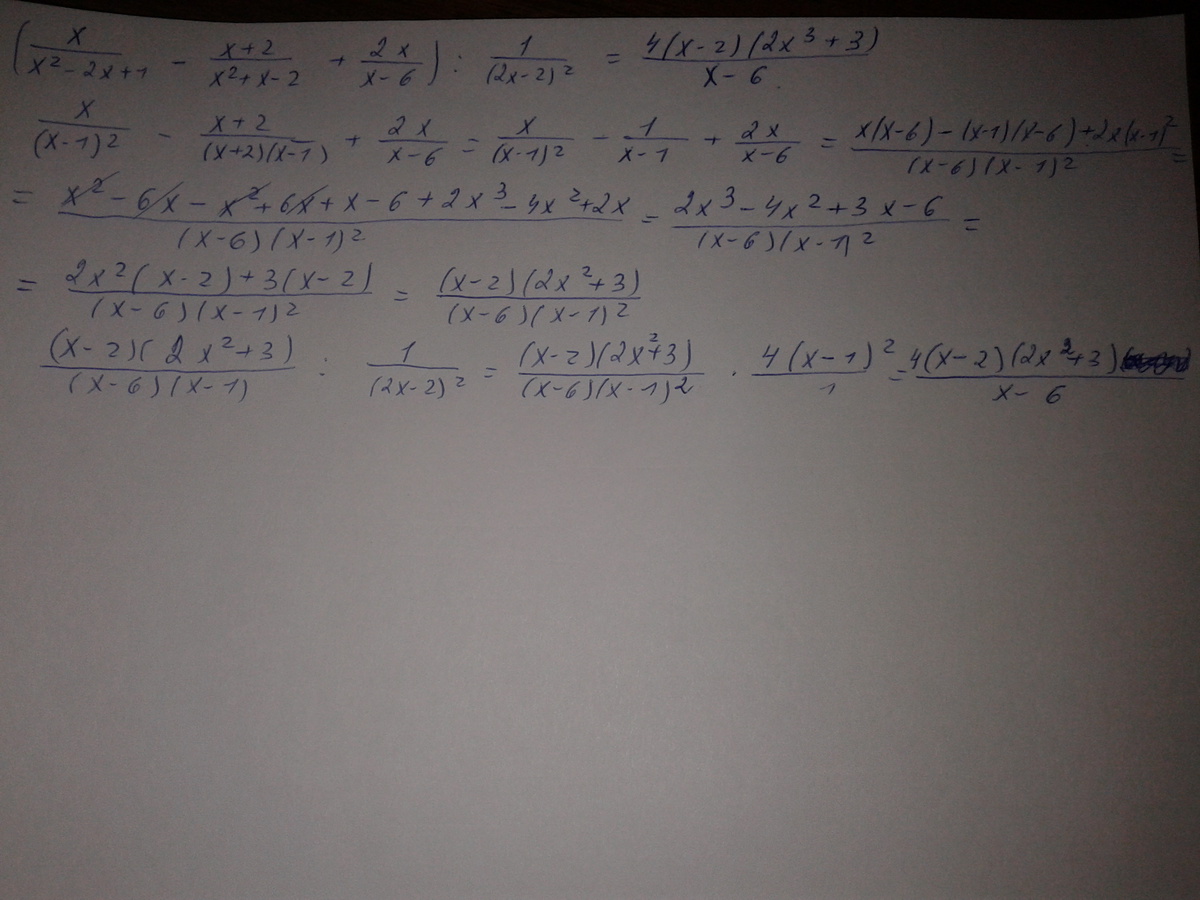 (x/(x²-2x+1) - (x+2)/(x²+x-2) + 2x/(x-6)) : 1/(2x-2)² = 4(x-2)(2x³+3)/(x-6)
x/(x-1)² - (x+2)/((x+2)(x-1)) + 2x/(x-6) = x/(x-1)² - 1/(x-1) + 2x/(x-6) = (x(x-6)-(x-1)(x-6)+2x(x-1)²)/((x-6)(x-1)²) =
= (x²-6x-x²+6x+x-6+2x³-4x²+2x)/((x-6)(x-1)²) = (2x³-4x²+3x-6)/((x-6)(x-1)²) =
= (2x²(x-2)+3(x-2))/((x-6)(x-1)²) = (x-2)(2x²+3)/((x-6)(x-1)²)
(x-2)(2x²+3)/((x-6)(x-1)) : 1/(2x-2)² = (x-2)(2x²+3)/((x-6)(x-1)²) · 4(x-1)²/1 = 4(x-2)(2x²+3)/(x-6)